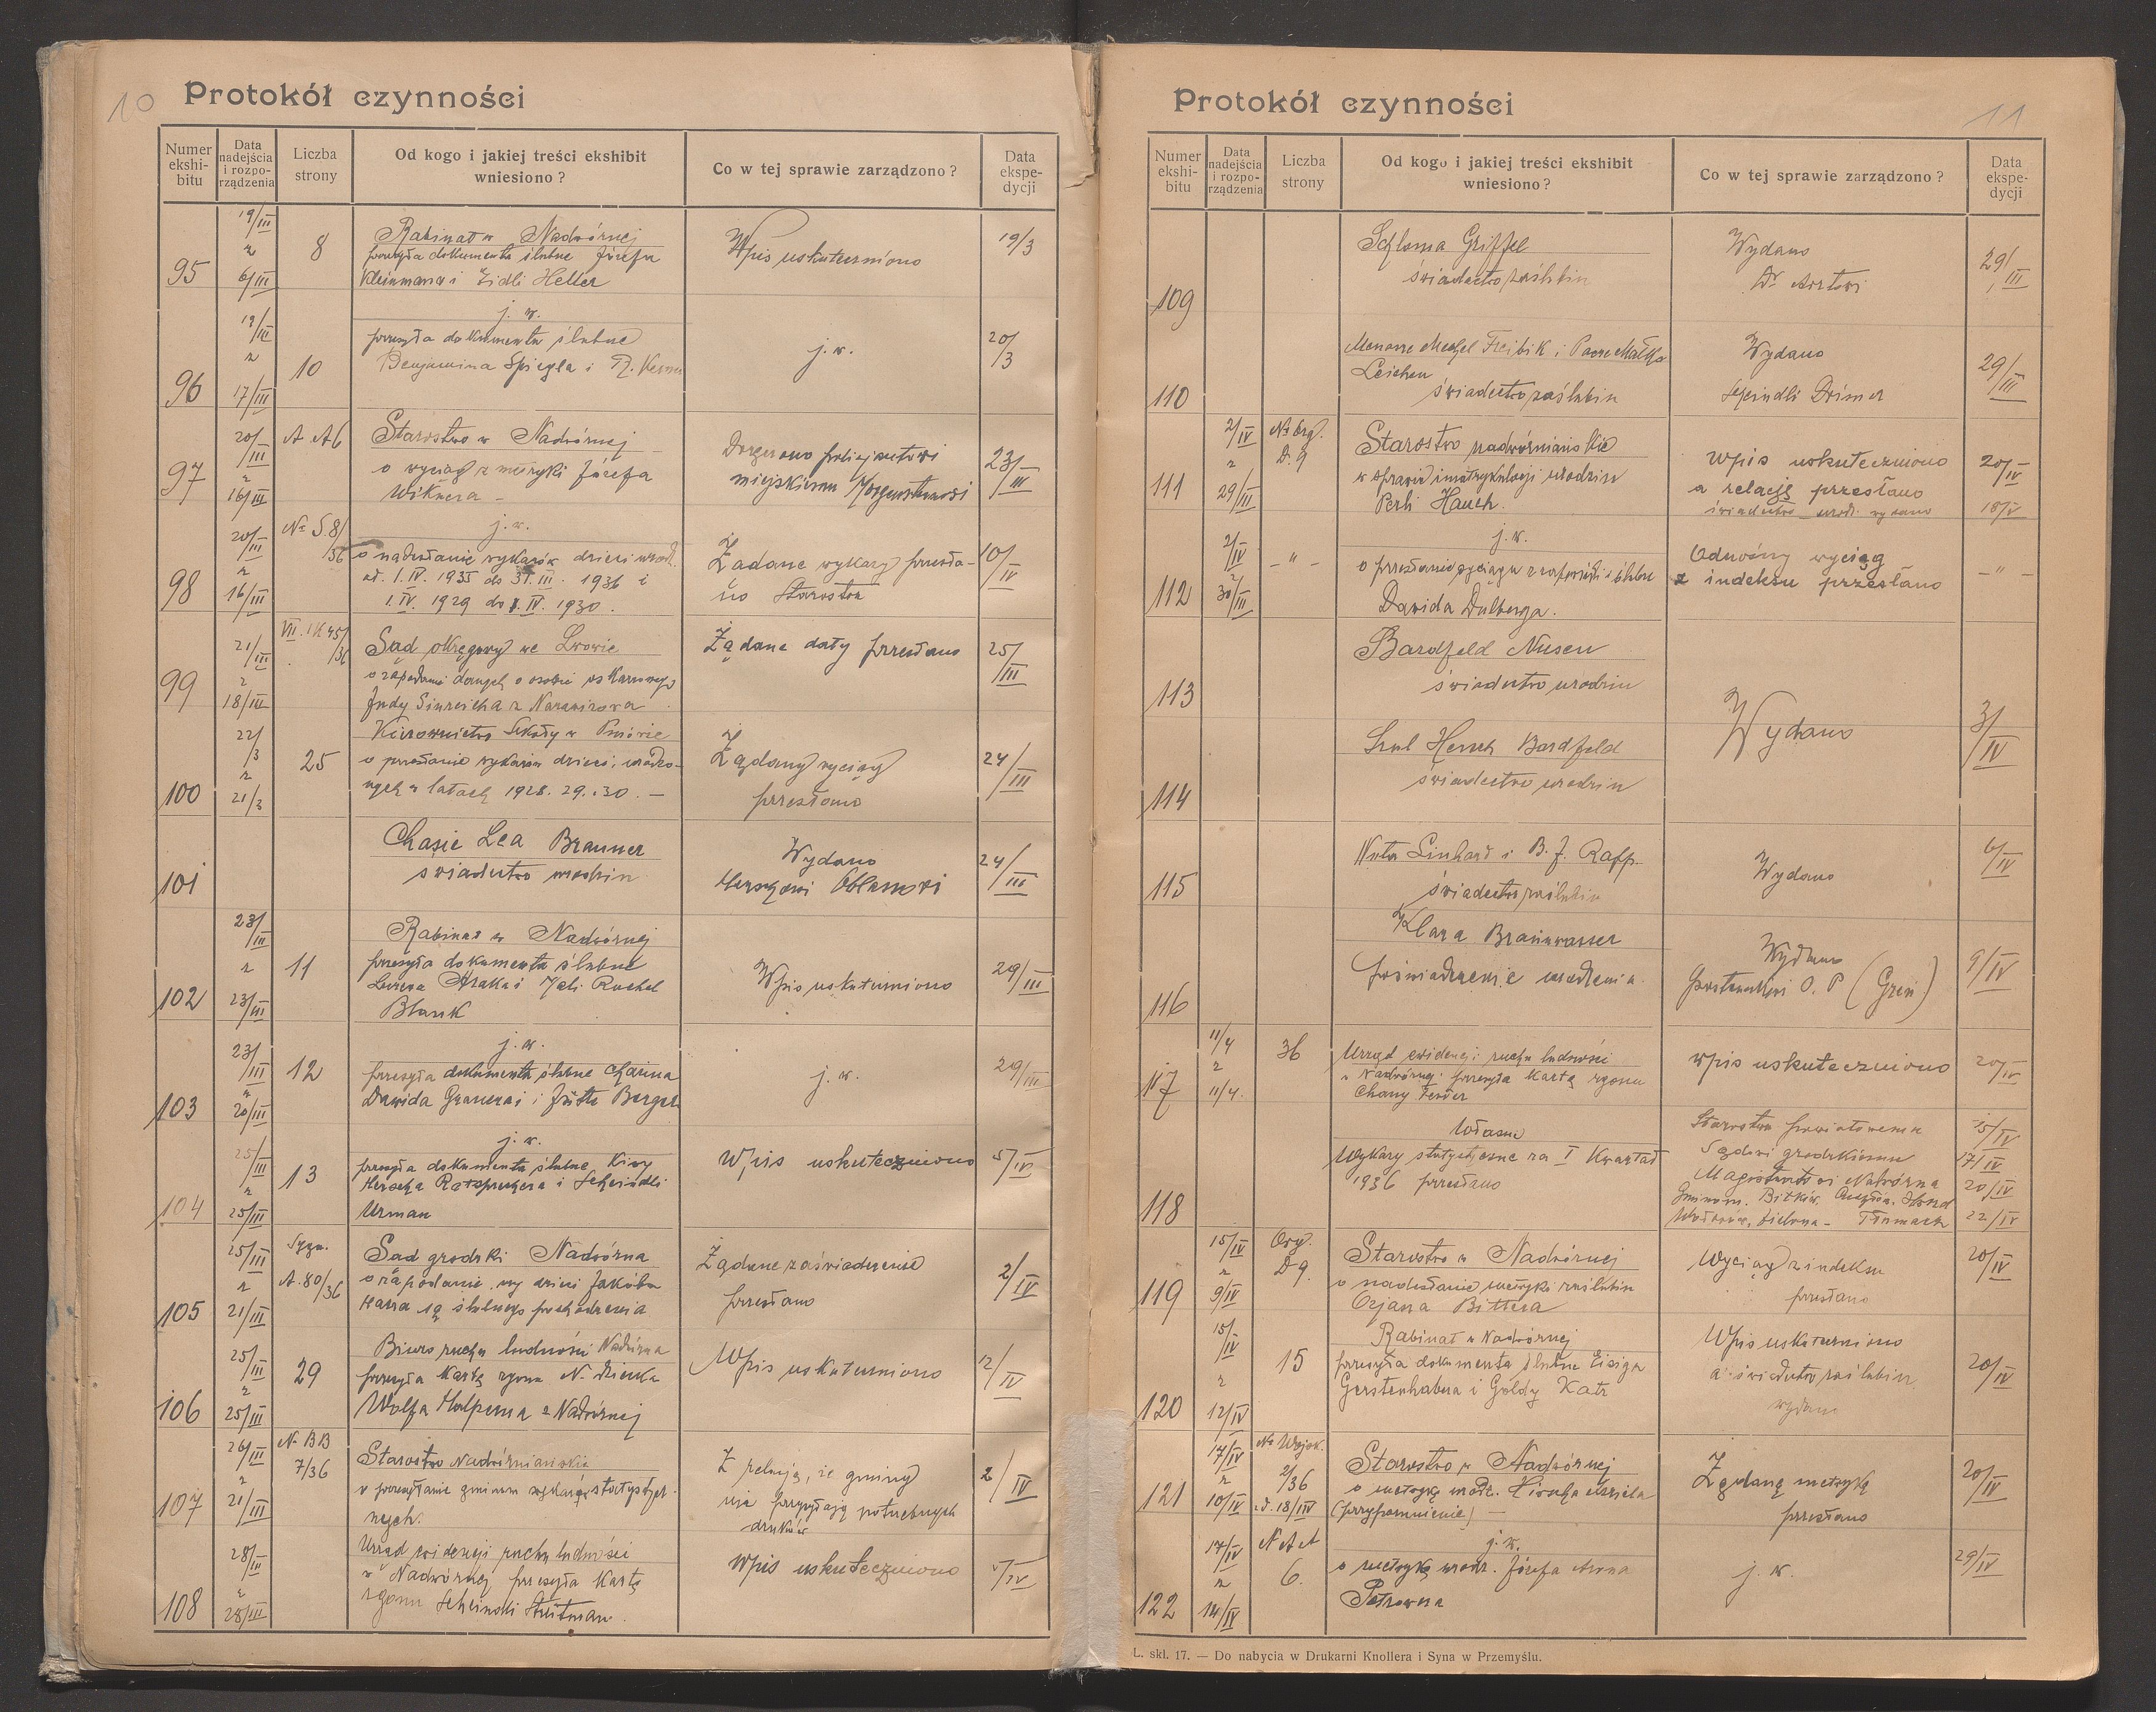 10
Protokół czynności
Numer ekshi-bitu
Data nadejścia i rozpo-rządzenia
Liczba strony
Od kogo i jakiej treści ekshibit wniesiono?
Co w tej sprawie zarządzono?
Data ekspe-dycji
95
19/III
z
6/III
8
Rabinat w Nadwórnej
przesyła dokumenta ślubne Józefa
Kleinmana i Eidli Heller
Wpis uskuteczniono
19/3
96
19/III
z
17/III
10
j. w.
przesyła dokumenta ślubne
Benjamina Spiegla i
j. w.
20/3
97
20/III
z
16/III
A A6
Starostwo w Nadwórnej
o wyciąg z metryki Józefa
Wiknera
miejskiemu
23/III
98
20/III
z
16/III
No S.8/
/36
j. w.
o nadesłanie wykazów dzieci urodz.
od. 1.IV. 1935 do 31.III. 1936 i
1.IV. 1929 do 1.IV. 1930.
Żądane wykazy przesła-
no Starostwu
10/IV
99
21/III
z
18/III
/36
Sąd okręgowy we Lwowie
o zapodanie danych o osobie oskarżonego
Judy
Żądane daty przesłano
25/III
100
22/3
z
21/3
25
Kierownictwo Szkoły w Pniowie
o przesłanie wykazów dzieci, urodzo-
nych w latach 1928. 29. i 30. —
Żądany wyciąg
przesłano
24/III
101
Chasie Lea Brauner
świadectwo urodzin
Wydano
24/III
102
23/III
z
23/III
11
Rabinat w Nadwórnej
przesyła dokumenta ślubne
Ruchel
Blank
Wpis uskuteczniono
29/III
103
23/III
z
20/III
12
j. w.
przesyła dokumenta ślubne Chaima
Dawida
j. w.
29/III
104
25/III
z
25/III
13
j. w.
przesyła dokumenta ślubne Kiwy
Herscha i Scheindli
Urman
Wpis uskuteczniono
5/IV
105
25/III
z
21/III
Sygn.
A. 80/36
Sąd grodzki Nadwórna
o zapodanie, czy dzieci Jakóba
Karra są ślubnego pochodzenia
Żądane zaświadczenie
przesłano
2/IV
106
25/III
z
25/III
29
Biuro ruchu ludności Nadwórna
przesyła kartę zgonu N. dziecka
Wolfa Halperna z Nadwórnej
Wpis uskuteczniono
12/IV
107
26/III
z
21/III
No BB
7/36
Starostwo Nadwórniańskie
o przesyłanie gminom wykazów statystycz-
nych.
Z relacją, że gminy
nie przysyłają potrzebnych
druków
2/IV
108
28/III
z
28/III
Urząd ewidencji ruchu ludności
w Nadwórnej przesyła kartę
zgonu Scheindli
Wpis uskuteczniono
5/IV
11
Protokół czynności
Numer ekshi-bitu
Data nadejścia i rozpo-rządzenia
Liczba strony
Od kogo i jakiej treści ekshibit wniesiono?
Co w tej sprawie zarządzono?
Data ekspe-dycji
109
Schloma Griffel
świadectwo zaślubin
Wydano
29/III
110
świadectwo zaślubin
Wydano
Scheindli Drimer
29/III
111
2/IV
z
29/III
No Org.
D. 9
Starostwo nadwórniańskie
w sprawie immatrykulacji urodzin
Perli Hauch.
Wpis uskuteczniono
a relację przesłano
świadectwo urodz. wydano
20/IV
18/V
112
2/IV
z
30/III
- " -
j. w.
o przesłanie wyciągu z zapowiedzi i ślubu
Dawida Dulberga.
Odnośny wyciąg
z indeksu przesłano
- " -
113
Bardfeld Nusen
świadectwo urodzin
Wydano
3/IV
114
Srul Hersch Bardfeld
świadectwo urodzin
115
Nuta Linhard i B. J. Rapp.
świadectwo zaślubin
Wydano
6/IV
116
Klara Braunwasser
poświadczenie urodzenia
Wydano
Posterunkowi O. P
9/IV
117
11/4
z
11/4.
36
Urząd ewidencji ruchu ludności
w Nadwórnej przesyła kartę zgonu
Chany
Wpis uskuteczniono
20/IV
118
Własne
Wykazy statystyczne za I Kwartał
1936 przesłano
Starostwu powiatowemu
Sądowi grodzkiemu
Magistratowi Nadwórna
Gminom. Bitków.
Zielona - Tłumacz
15/IV
17/IV
20/IV
22/IV
119
15/IV
z
9/IV
Org.
D 9.
Starostwo w Nadwórnej
o nadesłanie metryki zaślubin
Ozjasza Bittera
Wyciąg z indeksu
przesłano
20/IV
120
15/IV
z
12/IV
15
Rabinat w Nadwórnej
przesyła dokumenta ślubne Eisiga
Gerstenhabera i Goldy Katz
Wpis uskuteczniono
a świadectwo zaślubin
wydano
20/IV
121
17/IV
z
10/IV
No Wojsk.
2/36
Starostwo w Nadwórnej
o metrykę urodz.
(przypomnienie) —
Żądaną metrykę
przesłano
20/IV
122
17/IV
z
14/IV
N A A
6.
j. w.
o metrykę urodz. Józefa Arona
Petrowera
j. w.
29/IV
L. skł. 17. — Do nabycia w Drukarni Knollera i Syna w Przemyślu.